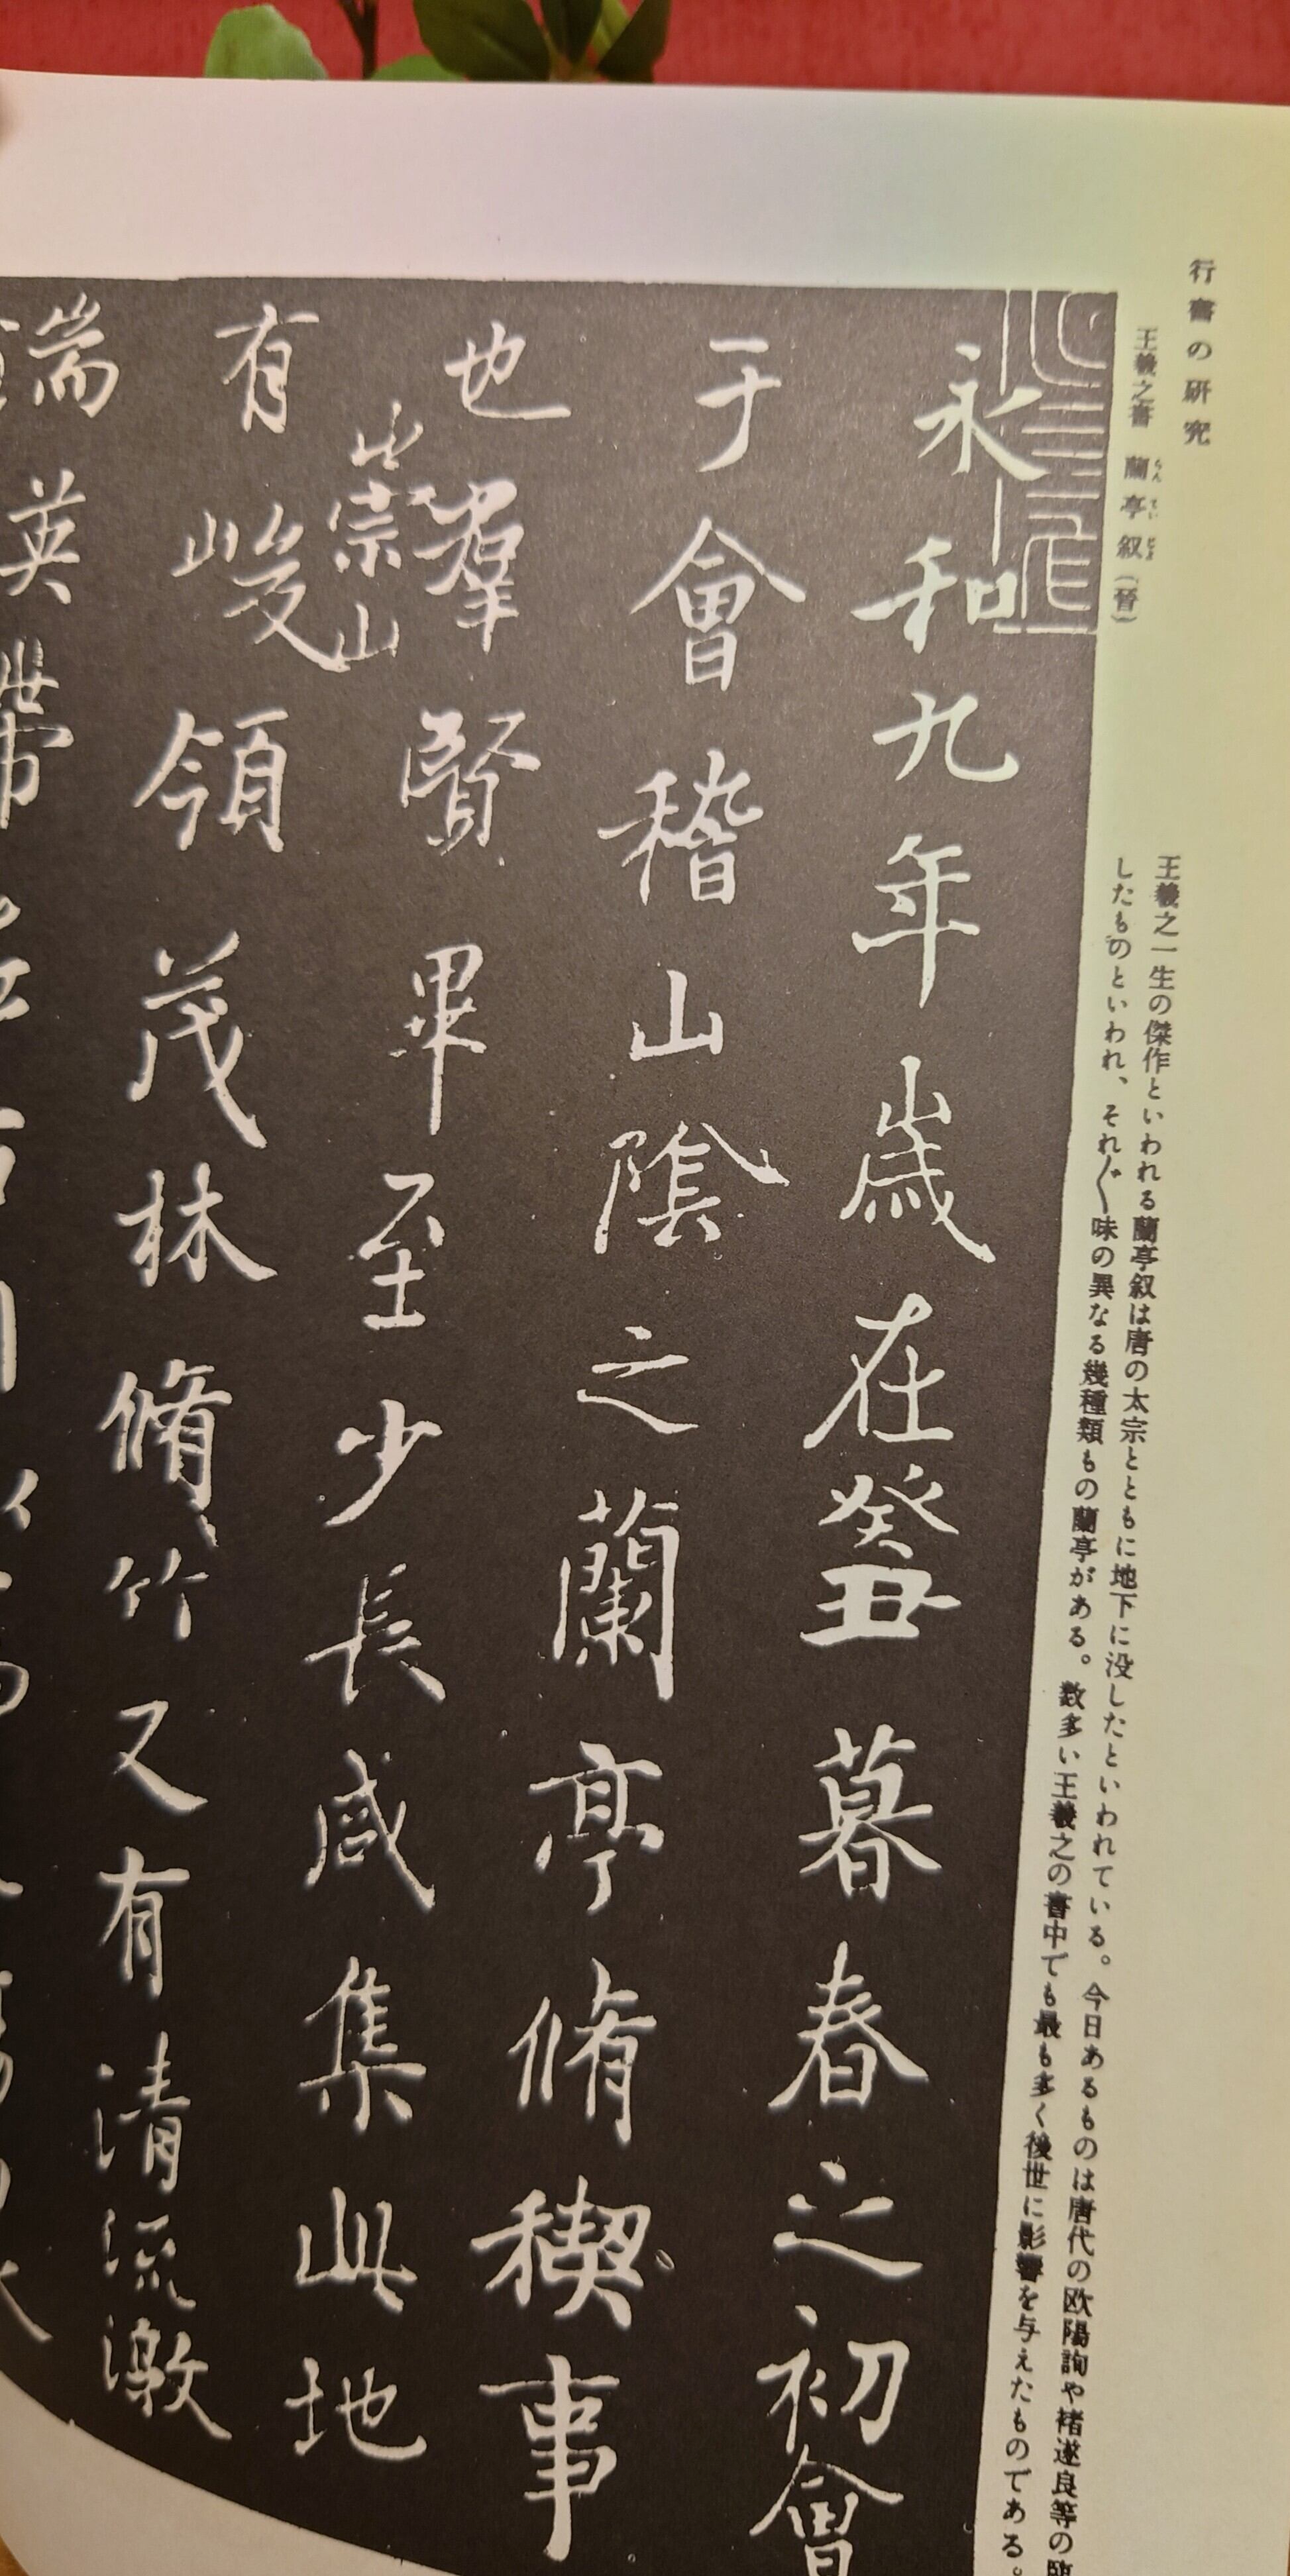 行書の研究
王羲之書 蘭亭叙(晉)
らんていじよ
王羲之一生の傑作といわれる蘭亭叙は唐の太宗とともに地下に没したといわれている。今日あるものは唐代の欧陽詢や褚遂良等の臨
したものといわれ、それ〲味の異なる幾種類もの蘭亭がある。数多い王羲之の書中でも最も多く後世に影響を与えたものである。
永和九年歳在癸丑暮春之初會
于會稽山陰之蘭亭脩稧事
也羣賢畢至少長咸集此地
崇山
有峻領茂林脩竹又有清流激
湍 英 帶